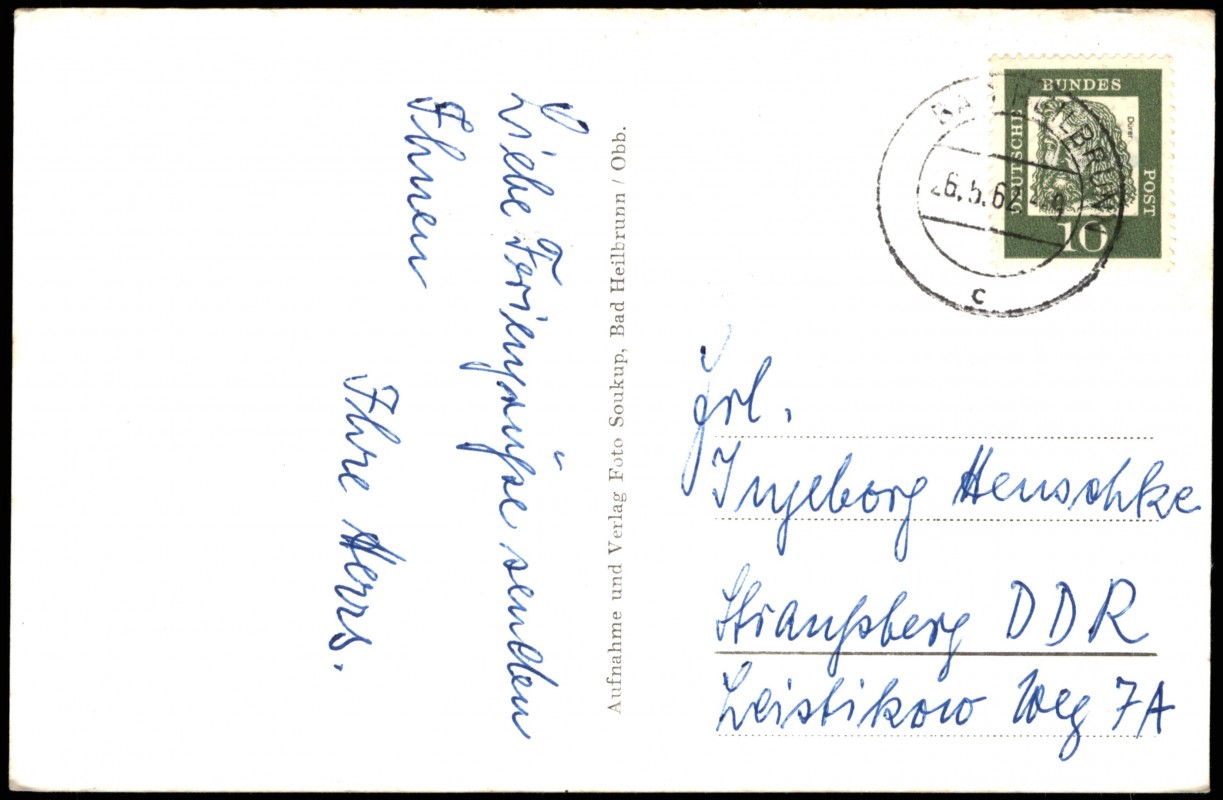 Liebe Feriengrüße senden
Ihnen
Ihre Herrs.
Aufnahme und Verlag Foto Soukup, Bad Heilbrunn / Obb.
DEUTSCHE BUNDES POST
Dürer
10
BAD HEILBRUNN
26.5.62
c
Frl.
Ingeborg Henschke
Straußberg DDR
Leistikow Weg 7A